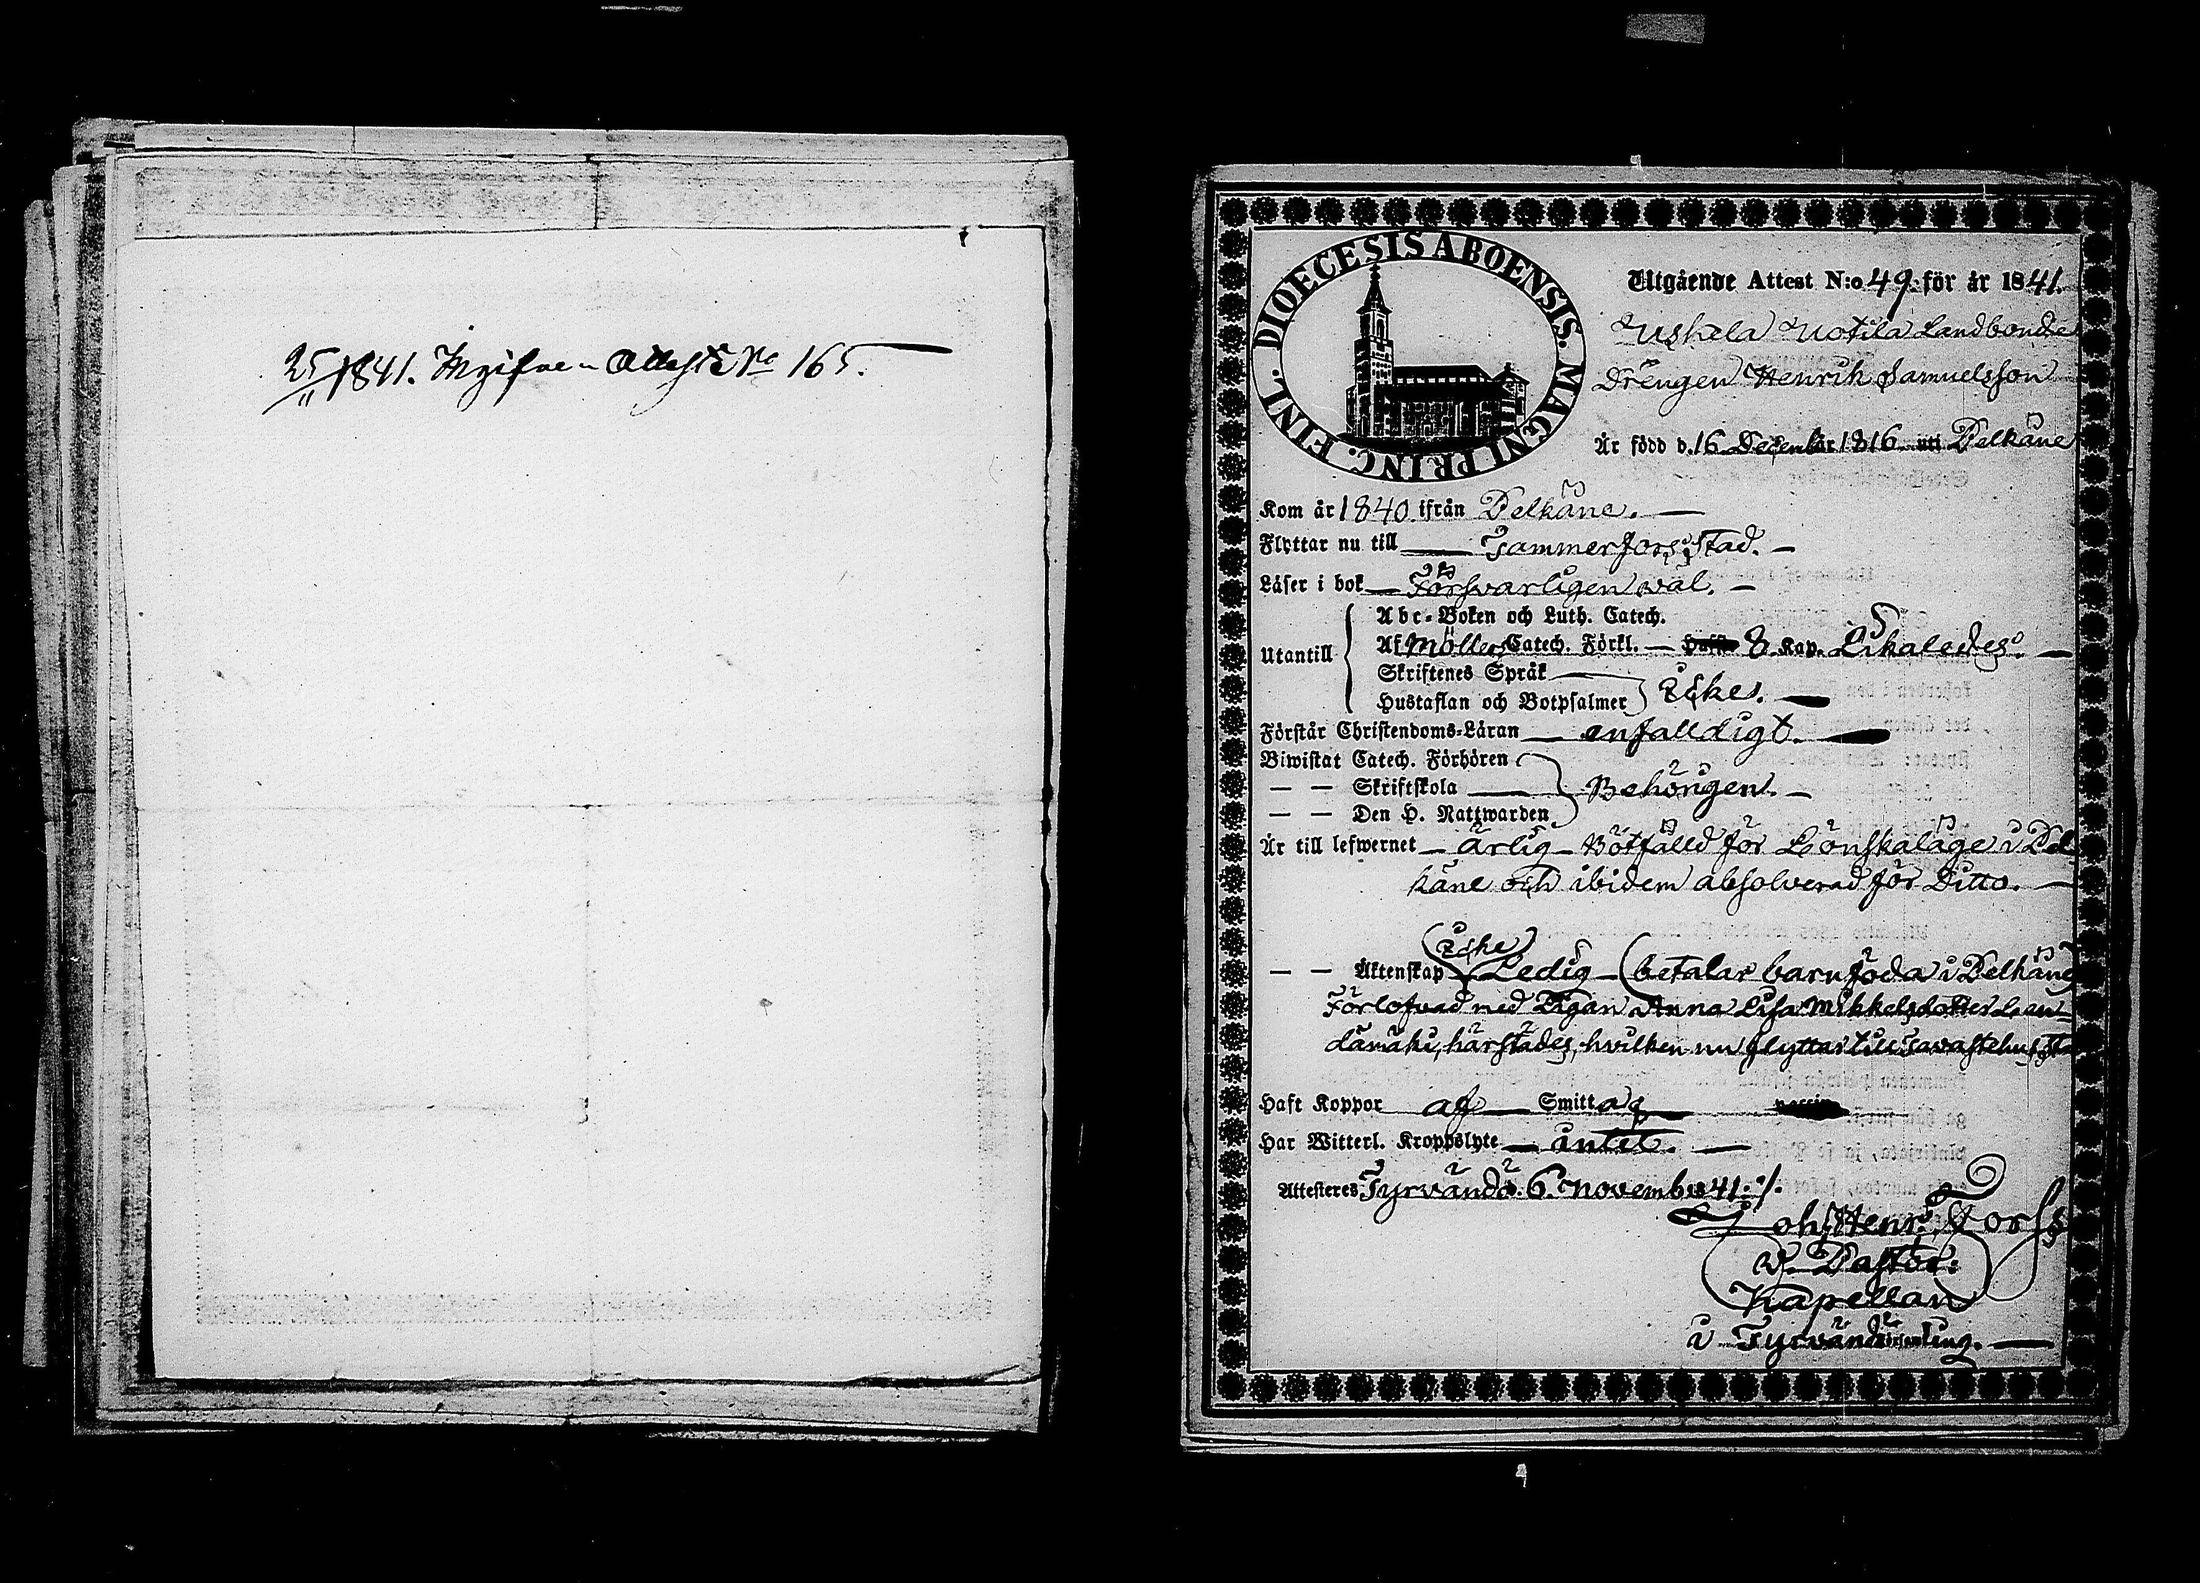 25/11 1841. Ingifven Attest No 165.
DIOECESIS ABOENSIS. MAGNI PRINC. FINL.
Utgående Attest N:o 49. för år 1841.
Uskela Uotila Landbonde
Drengen Henrik Samuelsson
Är född d. 16 December 1816 uti Pelkäne
Kom år 1840. ifrån Pelkäne.
Flyttar nu till Tammerfors Stad.
Läser i bok Försvarligen wäl.
Utantill
Abc-Boken och Luth. Catech.
Af Möllers Catech. Förkl. 8 Kap. Likaledes.
Skriftenes Språk
Hustaflan och Botpsalmer Icke.
Förstår Christendoms-Läran enfalldigt.
Biwistat Catech. Förhören
— — Skriftskola Behörigen.
— — Den H. Nattwarden
Är till lefwernet ärlig Bötfälld för Lönskaläge i Pel
käne och ibidem absolverad för Ditto.
(Icke)
— — Äktenskap Ledig (betalar barnföda i Pelkäne
Förlofvad med Pigan Anna Lisa Mikkelsdotter
härstädes, hvilken nu flyttar till Tavastehus
Haft Koppor af Smitta
Har Witterl. Kroppslyte intet.
Attesteres Tyrvändö. 6. November 1841.
Joh. Henr. Forss
v. Pastor.
Kapellan
i Tyrvändö